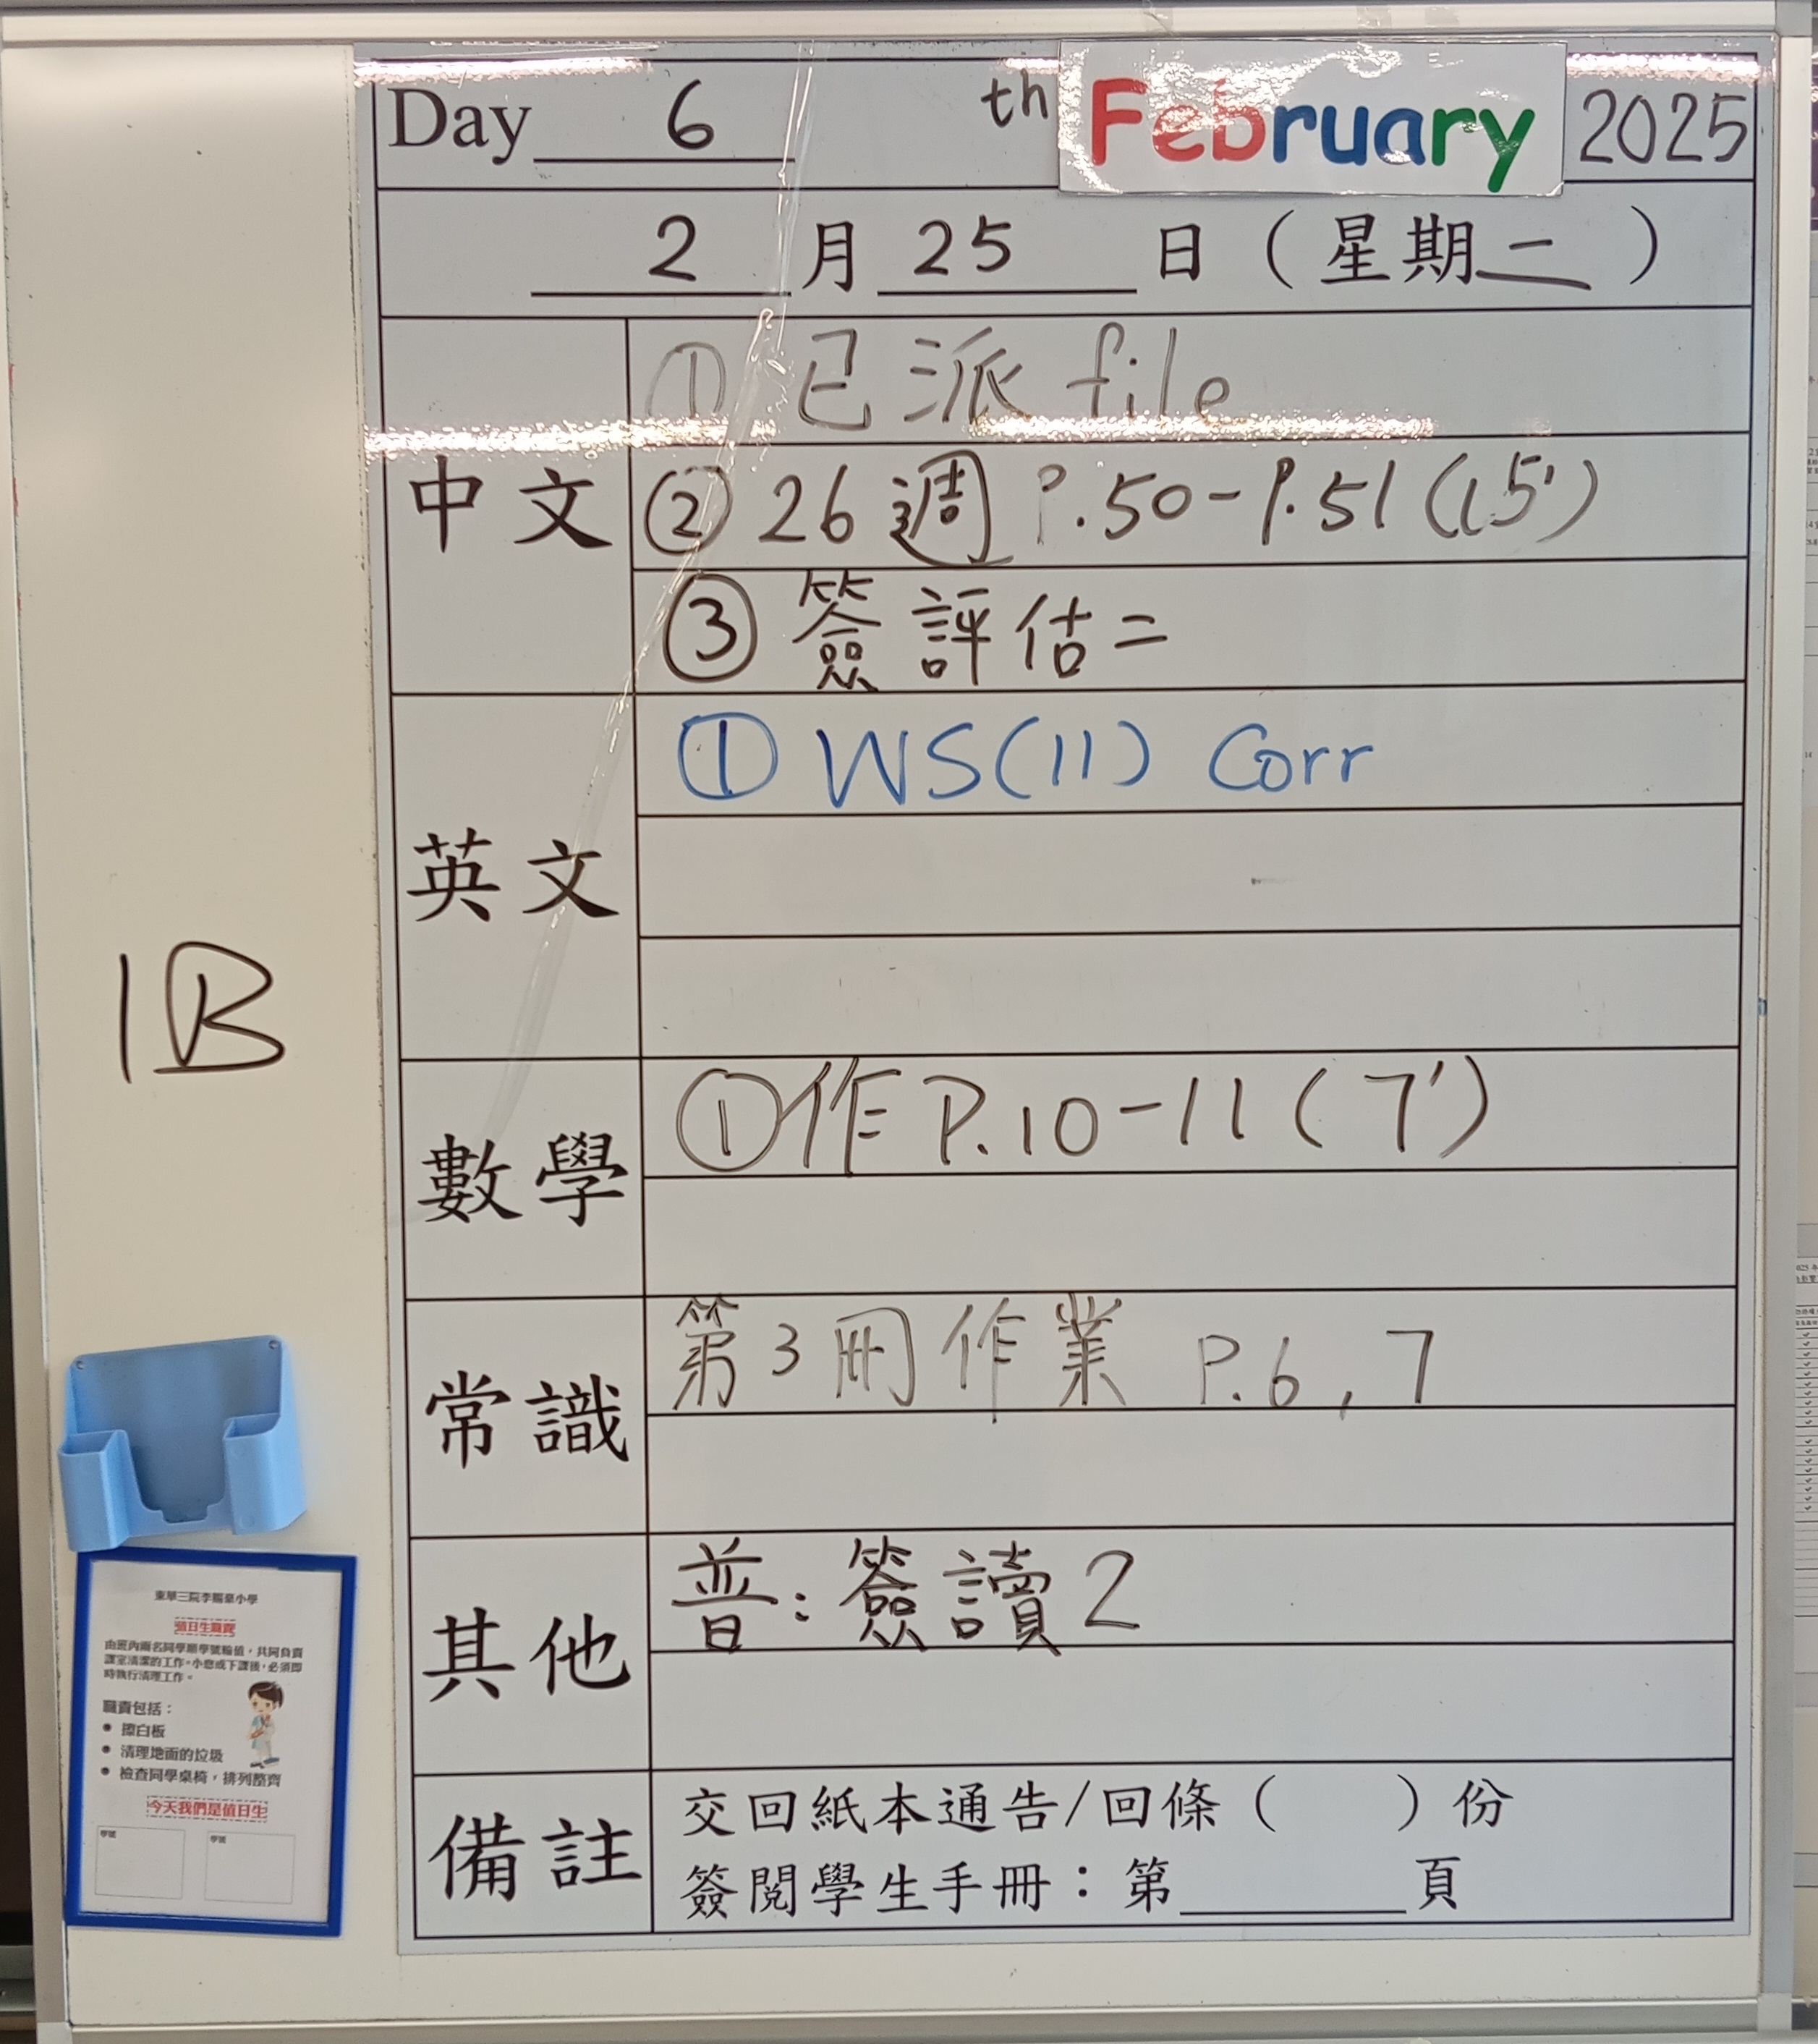 Day 6 th February 2025
2 月 25 日 ( 星期二 )
中文
① 已派 file
② 26週 P.50-P.51 (15')
③ 簽評估二
英文
① WS(11) Corr
數學
① 作 P.10-11 ( 7' )
常識
第3冊作業 P.6, 7
其他
普: 簽讀2
備註
交回紙本通告/回條 (    ) 份
簽閱學生手冊：第______頁
1B
東華三院李賜豪小學
值日生職責
由班內兩名同學順學號輪值，共同負責
課室清潔的工作。小息或下課後，必須即
時執行清理工作。
職責包括：
• 擦白板
• 清理地面的垃圾
• 檢查同學桌椅，排列整齊
今天我們是值日生
學號 學號